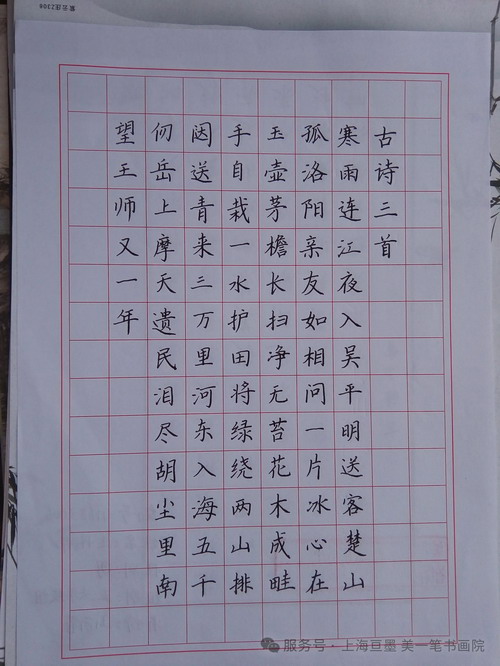 古诗三首
寒雨连江夜入吴平明送客楚山
孤洛阳亲友如相问一片冰心在
玉壶茅檐长扫净无苔花木成畦
手自栽一水护田将绿绕两山排
闼送青来三万里河东入海五千
仞岳上摩天遗民泪尽胡尘里南
望王师又一年
服务号·上海亘墨 美一笔书画院